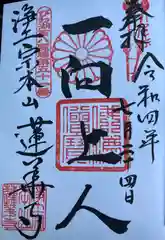 奉拝
令和四年
七月二十四日
一向上人
浄土宗本山 蓮華寺